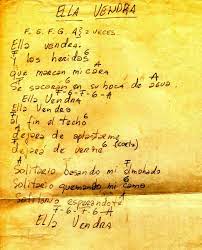 ELLA VENDRA
F. G. F. G. A} 2 VECES
Ella vendra.
F G
Y las heridas
que marcan mi cara A
Se secaran en su boca de agua.
F-G-F-G-A
Ella Vendra
Ella Vendra
F G
al fin el techo
A
dejara de aplastarme
F G (corte)
dejara de verme
F A
Solitario besando mi almohada
Solitario quemando mi cama
F A
Solitario esperandote
F-G-F-G-A
Ella Vendra